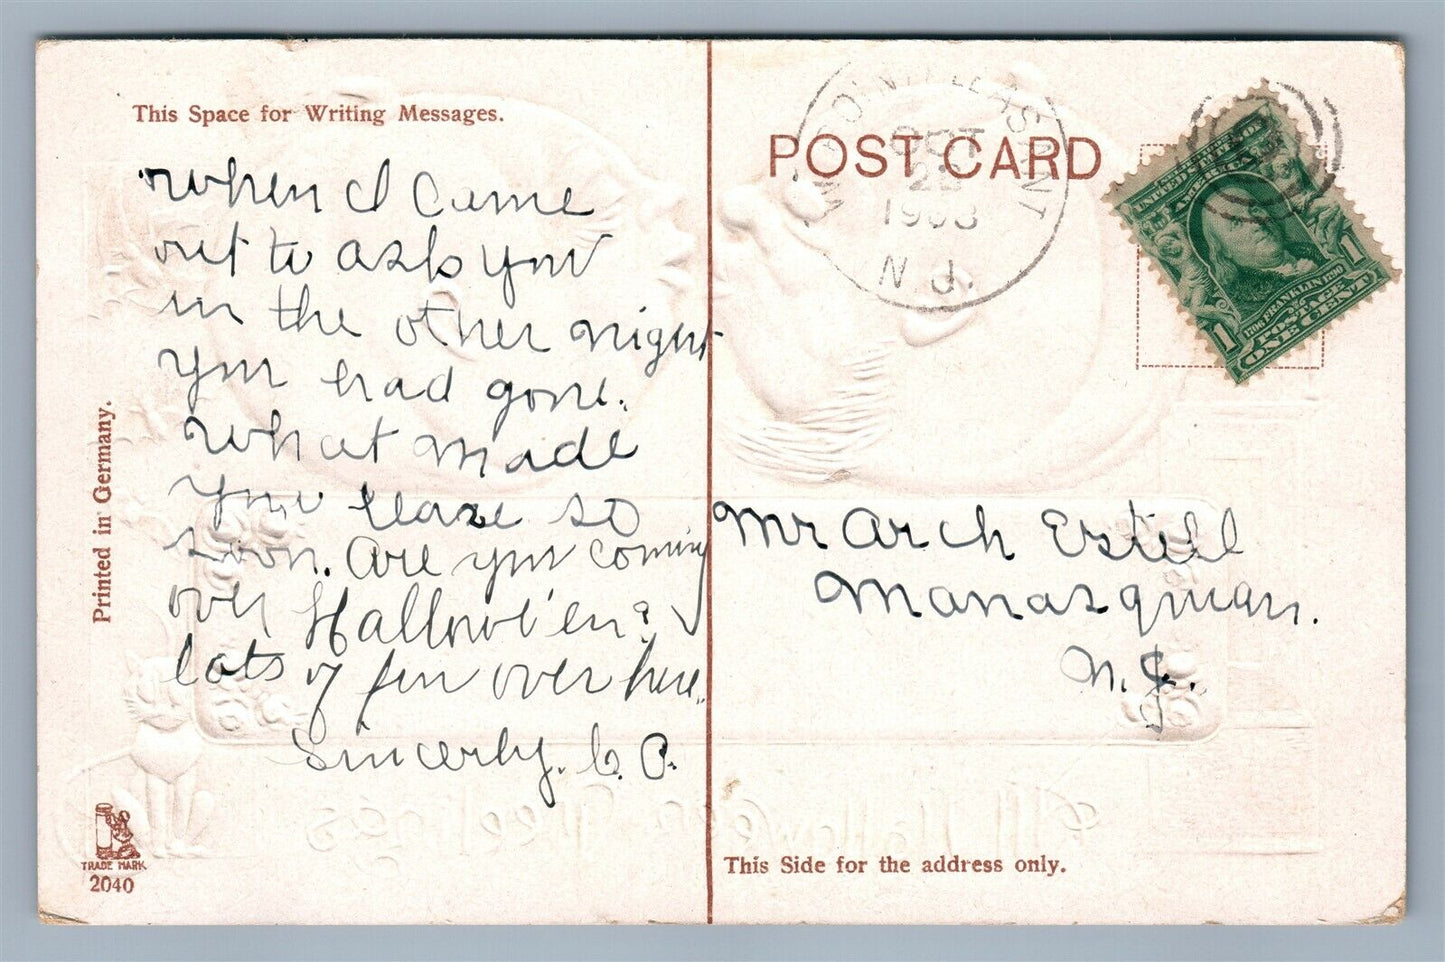 This Space for Writing Messages.
When I came
out to ask you
in the other night
you had gone.
What made
you leave so
soon. Are you coming
over Hallowe'en?
lots of fun over here.
Sincerly. C. P.
Printed in Germany.
TRADE MARK
2040
POST CARD
POINT PLEASANT
OCT
1908
N.J.
UNITED STATES OF
AMERICA
1706 FRANKLIN 1790
POSTAGE
1 ONE CENT 1
Mr Arch Estell
Manasquan.
N. J.
This Side for the address only.
Halloween Greetings